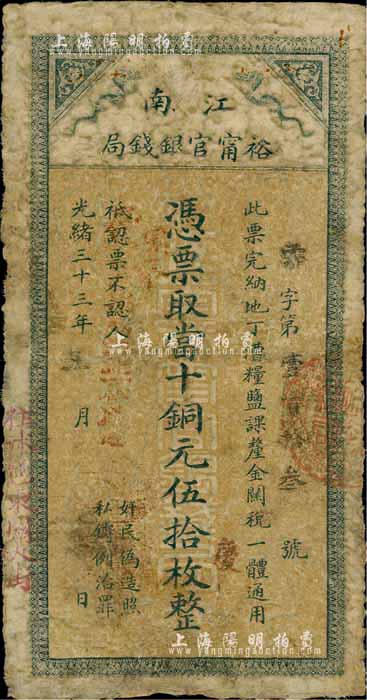 上海陽明拍賣
www.yangmingauction.com
江南
裕甯官銀錢局
字第壹
號
此票完納地丁漕糧鹽課釐金關稅一體通用
憑票取當十銅元伍拾枚整
祗認票不認人
奸民偽造照
私鑄例治罪
光緒三十三年
月
日
慶
上海陽明拍賣
www.yangmingauction.com
上海陽明拍賣
www.yangmingauction.com